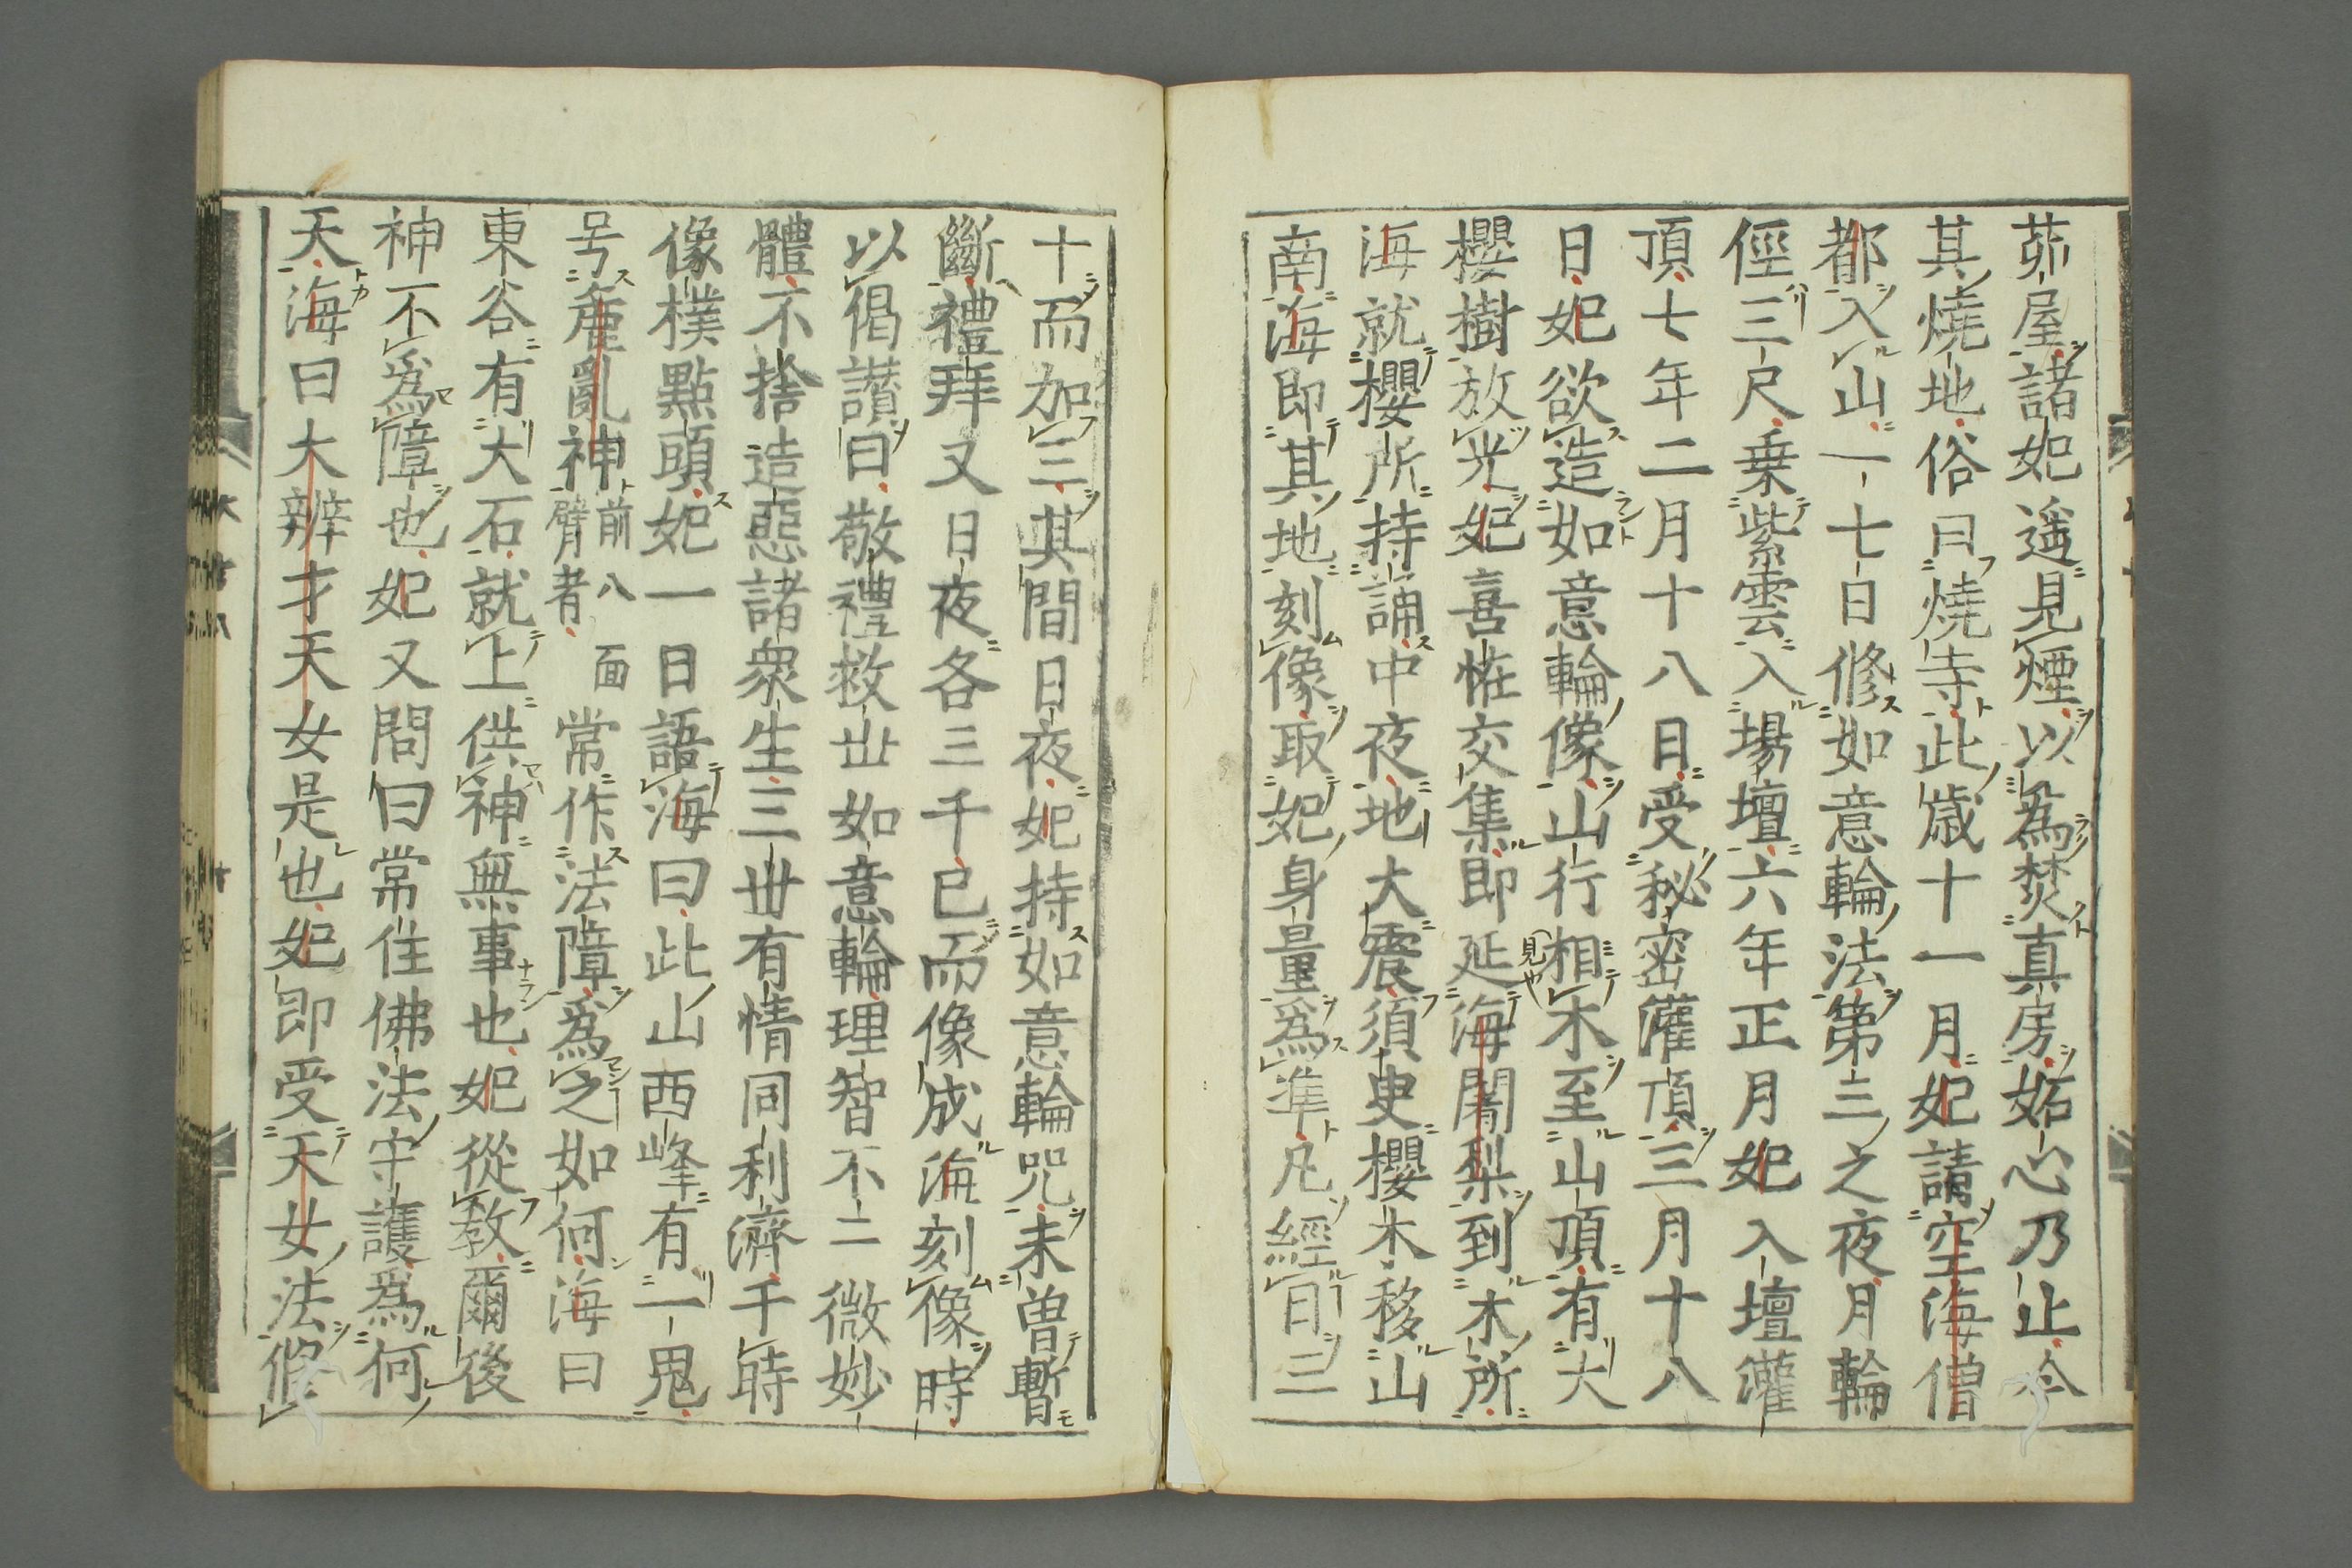 茆屋諸妃遥見煙以為焚真房妬心乃止今
其燒地俗曰燒寺此歳十一月妃請空海僧
都入山一七日修如意輪法第三之夜月輪
俓三尺乗紫雲入場壇六年正月妃入壇灌
頂七年二月十八日受秘密灌頂三月十八
日妃欲造如意輪像山行相木至山頂有大
櫻樹放光妃喜恠交集即延海闍梨到木所
海就櫻所持誦中夜地大震須臾櫻木移山
南海即其地刻像取妃身量為準凡經日三
十而加三其間日夜妃持如意輪咒未曽暫
斷禮拜又日夜各三千已而像成海刻像時
以偈讃曰敬禮救世如意輪理智不二微妙
體不捨造惡諸衆生三世有情同利濟千時
像樸點頭妃一日語海曰此山西峰有一鬼
号麁亂神前八面臂者常作法障為之如何海曰
東谷有大石就上供神無事也妃從教爾後
神不為障也妃又問曰常住佛法守護為何
天海曰大辨才天女是也妃即受天女法修